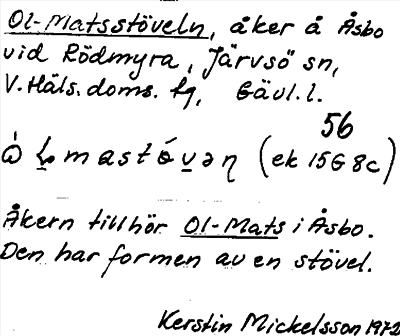 Ol-Matsstöveln, åker å Åsbo
vid Rödmyra, Järvsö sn,
V. Häls. doms. fg, Gävl. l.
56
(ek 15G 8c)
Åkern tillhör Ol-Mats i Åsbo.
Den har formen av en stövel.
Kerstin Mickelsson 1972